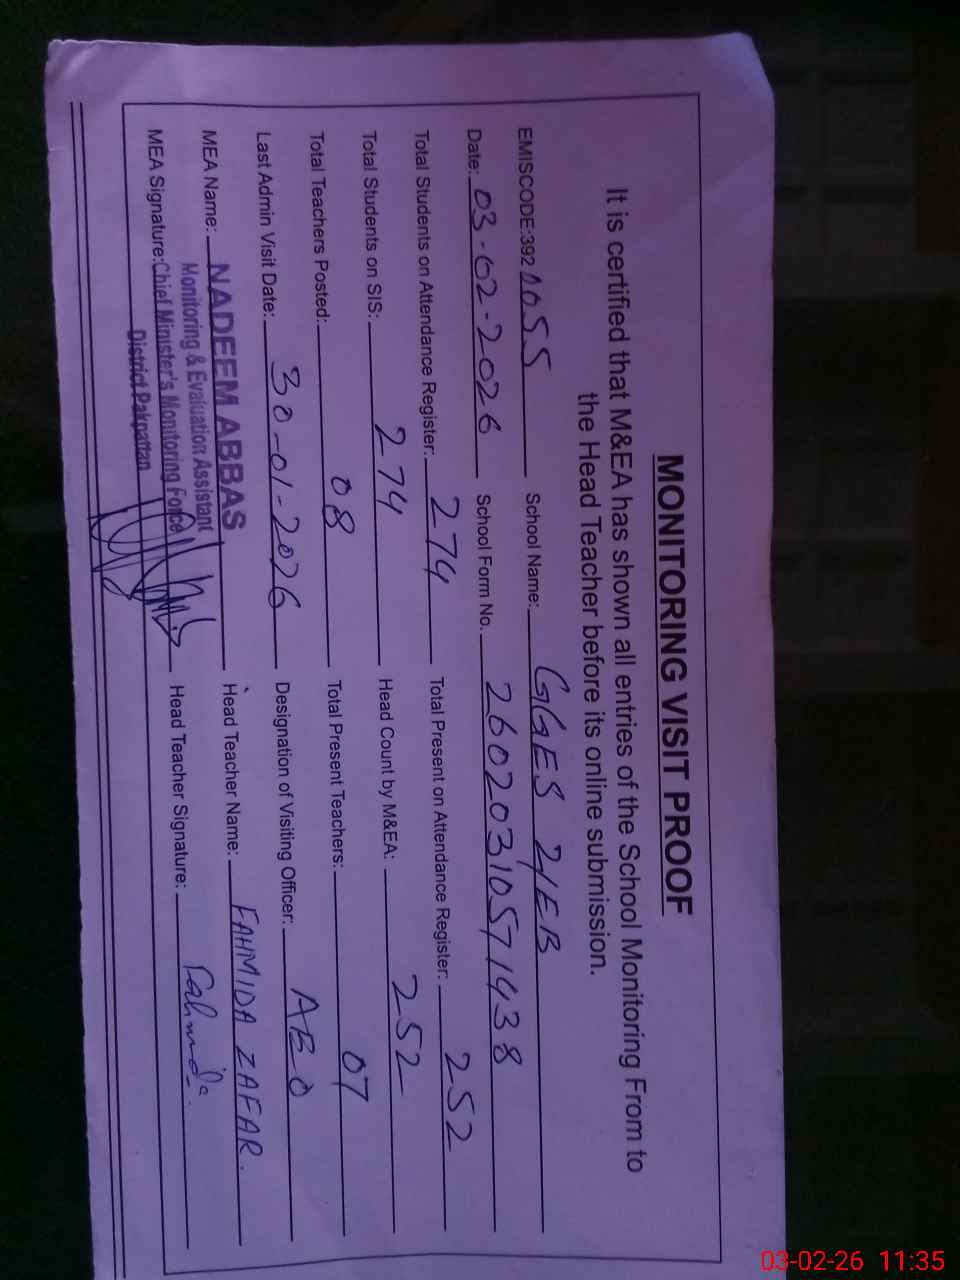 MONITORING VISIT PROOF
It is certified that M&EA has shown all entries of the School Monitoring From to
the Head Teacher before its online submission.
EMISCODE:392 0055 School Name: GGES 2/EB
Date: 03-02-2026 School Form No. 26020310571438
Total Students on Attendance Register: 274 Total Present on Attendance Register: 252
Total Students on SIS: 274 Head Count by M&EA: 252
Total Teachers Posted: 08 Total Present Teachers: 07
Last Admin Visit Date: 30-01-2026 Designation of Visiting Officer: AEO
MEA Name: NADEEM ABBAS Head Teacher Name: FAHMIDA ZAFAR.
Monitoring & Evaluation Assistant
MEA Signature: Chief Minister's Monitoring Force Head Teacher Signature: Fahmida.
District Pakpattan
03-02-26 11:35